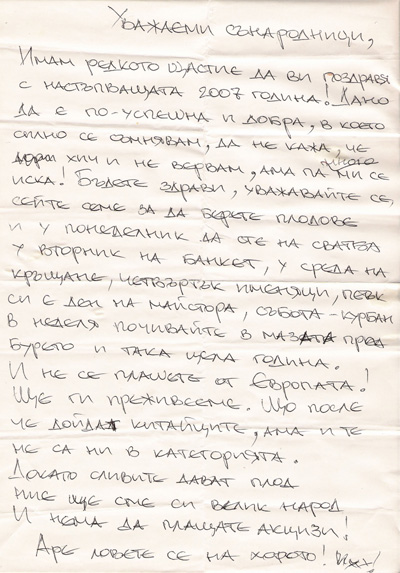 Уважаеми сънародници,
Имам редкото щастие да ви поздравя
с настъпващата 2007 година! Дано
да е по-успешна и добра, в което
силно се съмнявам, да не кажа, че
хич и не вервам, ама па много ми се
иска! Бъдете здрави, уважавайте се,
сейте семе за да берете плодове
и у понеделник да сте на сватба
у вторник на банкет, у среда на
кръщане, четвъртък именници, петък
си е ден на майстора, събота - курбан
в неделя почивайте в мазата пред
бурето и така цела година.
И не се плашете от Европата!
Ще ги преживееме. Що после
че дойдат китайците, ама и те
не са ни в категорията.
Докато сливите дават плод
ние ще сме си велик народ
И нема да плащате акцизи!
Аре ловете се на хорото!